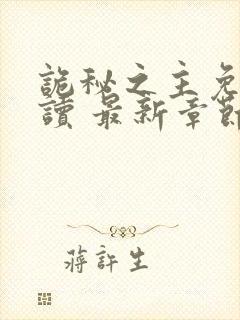 詭秘之主免
讀 最新章節
蔣許生